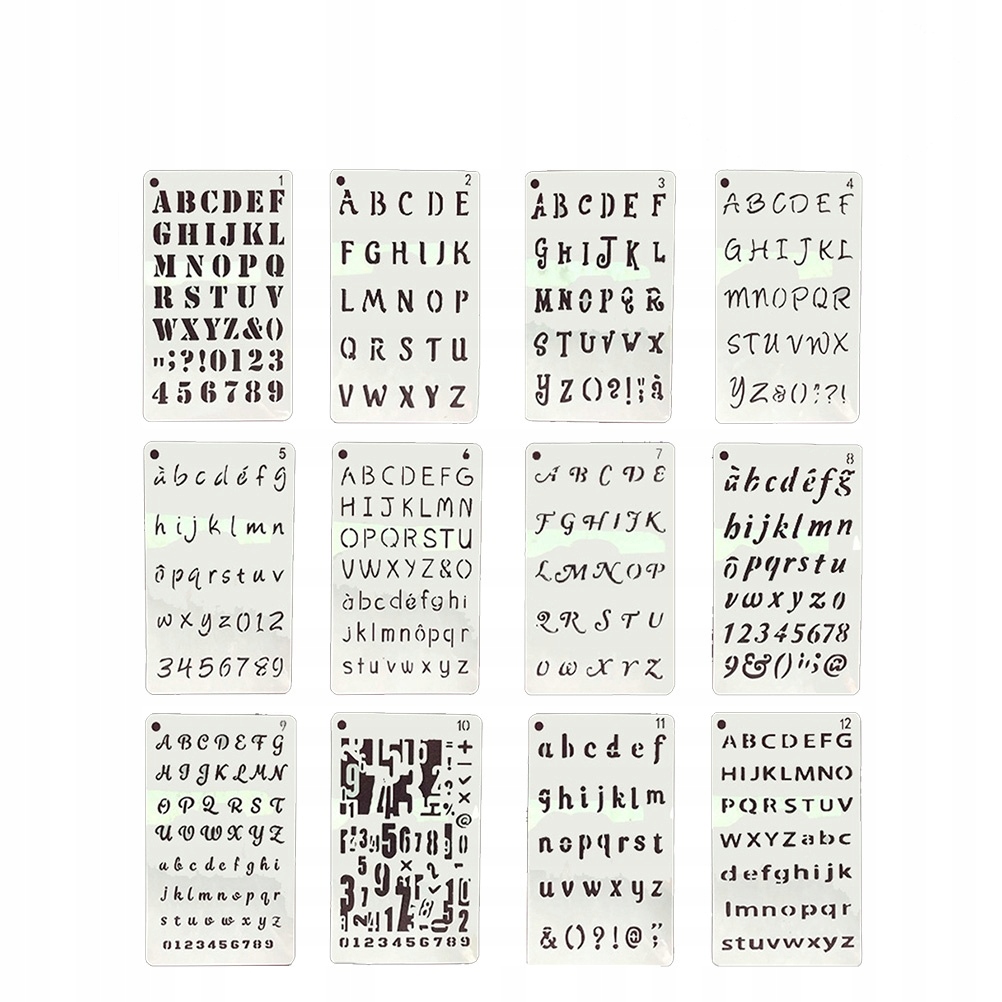 1
ABCDEF
GHIJKL
MNOPQ
RSTUV
WXYZ&()
";?!0123
456789
2
ABCDE
FGHIJK
LMNOP
QRSTU
VWXYZ
3
ABCDEF
GHIJKL
MNOPQR
STUVWX
YZ()?!;"à
4
ABCDEF
GHIJKL
MNOPQR
STUVWX
YZ&();"?!
5
àbcdéfg
hijklmn
ôpqrstuv
wxyz()12
3456789
6
ABCDEFG
HIJKLMN
OPQRSTU
VWXYZ&()
àbcdéfghi
jklmnôpqr
stuvwxyz
7
ABCDE
FGHIJK
LMNOP
QRSTU
VWXYZ
8
àbcdéfg
hijklmn
ôpqrstu
vwxyz0
12345678
9&()";@
9
ABCDEFG
HIJKLMN
OPQRST
UVWXYZ
abcdefghi
jklmnopqr
stuvwxyz
0123456789
10
0123456789
11
abcdef
ghijklm
nopqrst
uvwxyz
&()?!@;
12
ABCDEFG
HIJKLMNO
PQRSTUV
WXYZabc
defghijk
lmnopqr
stuvwxyz